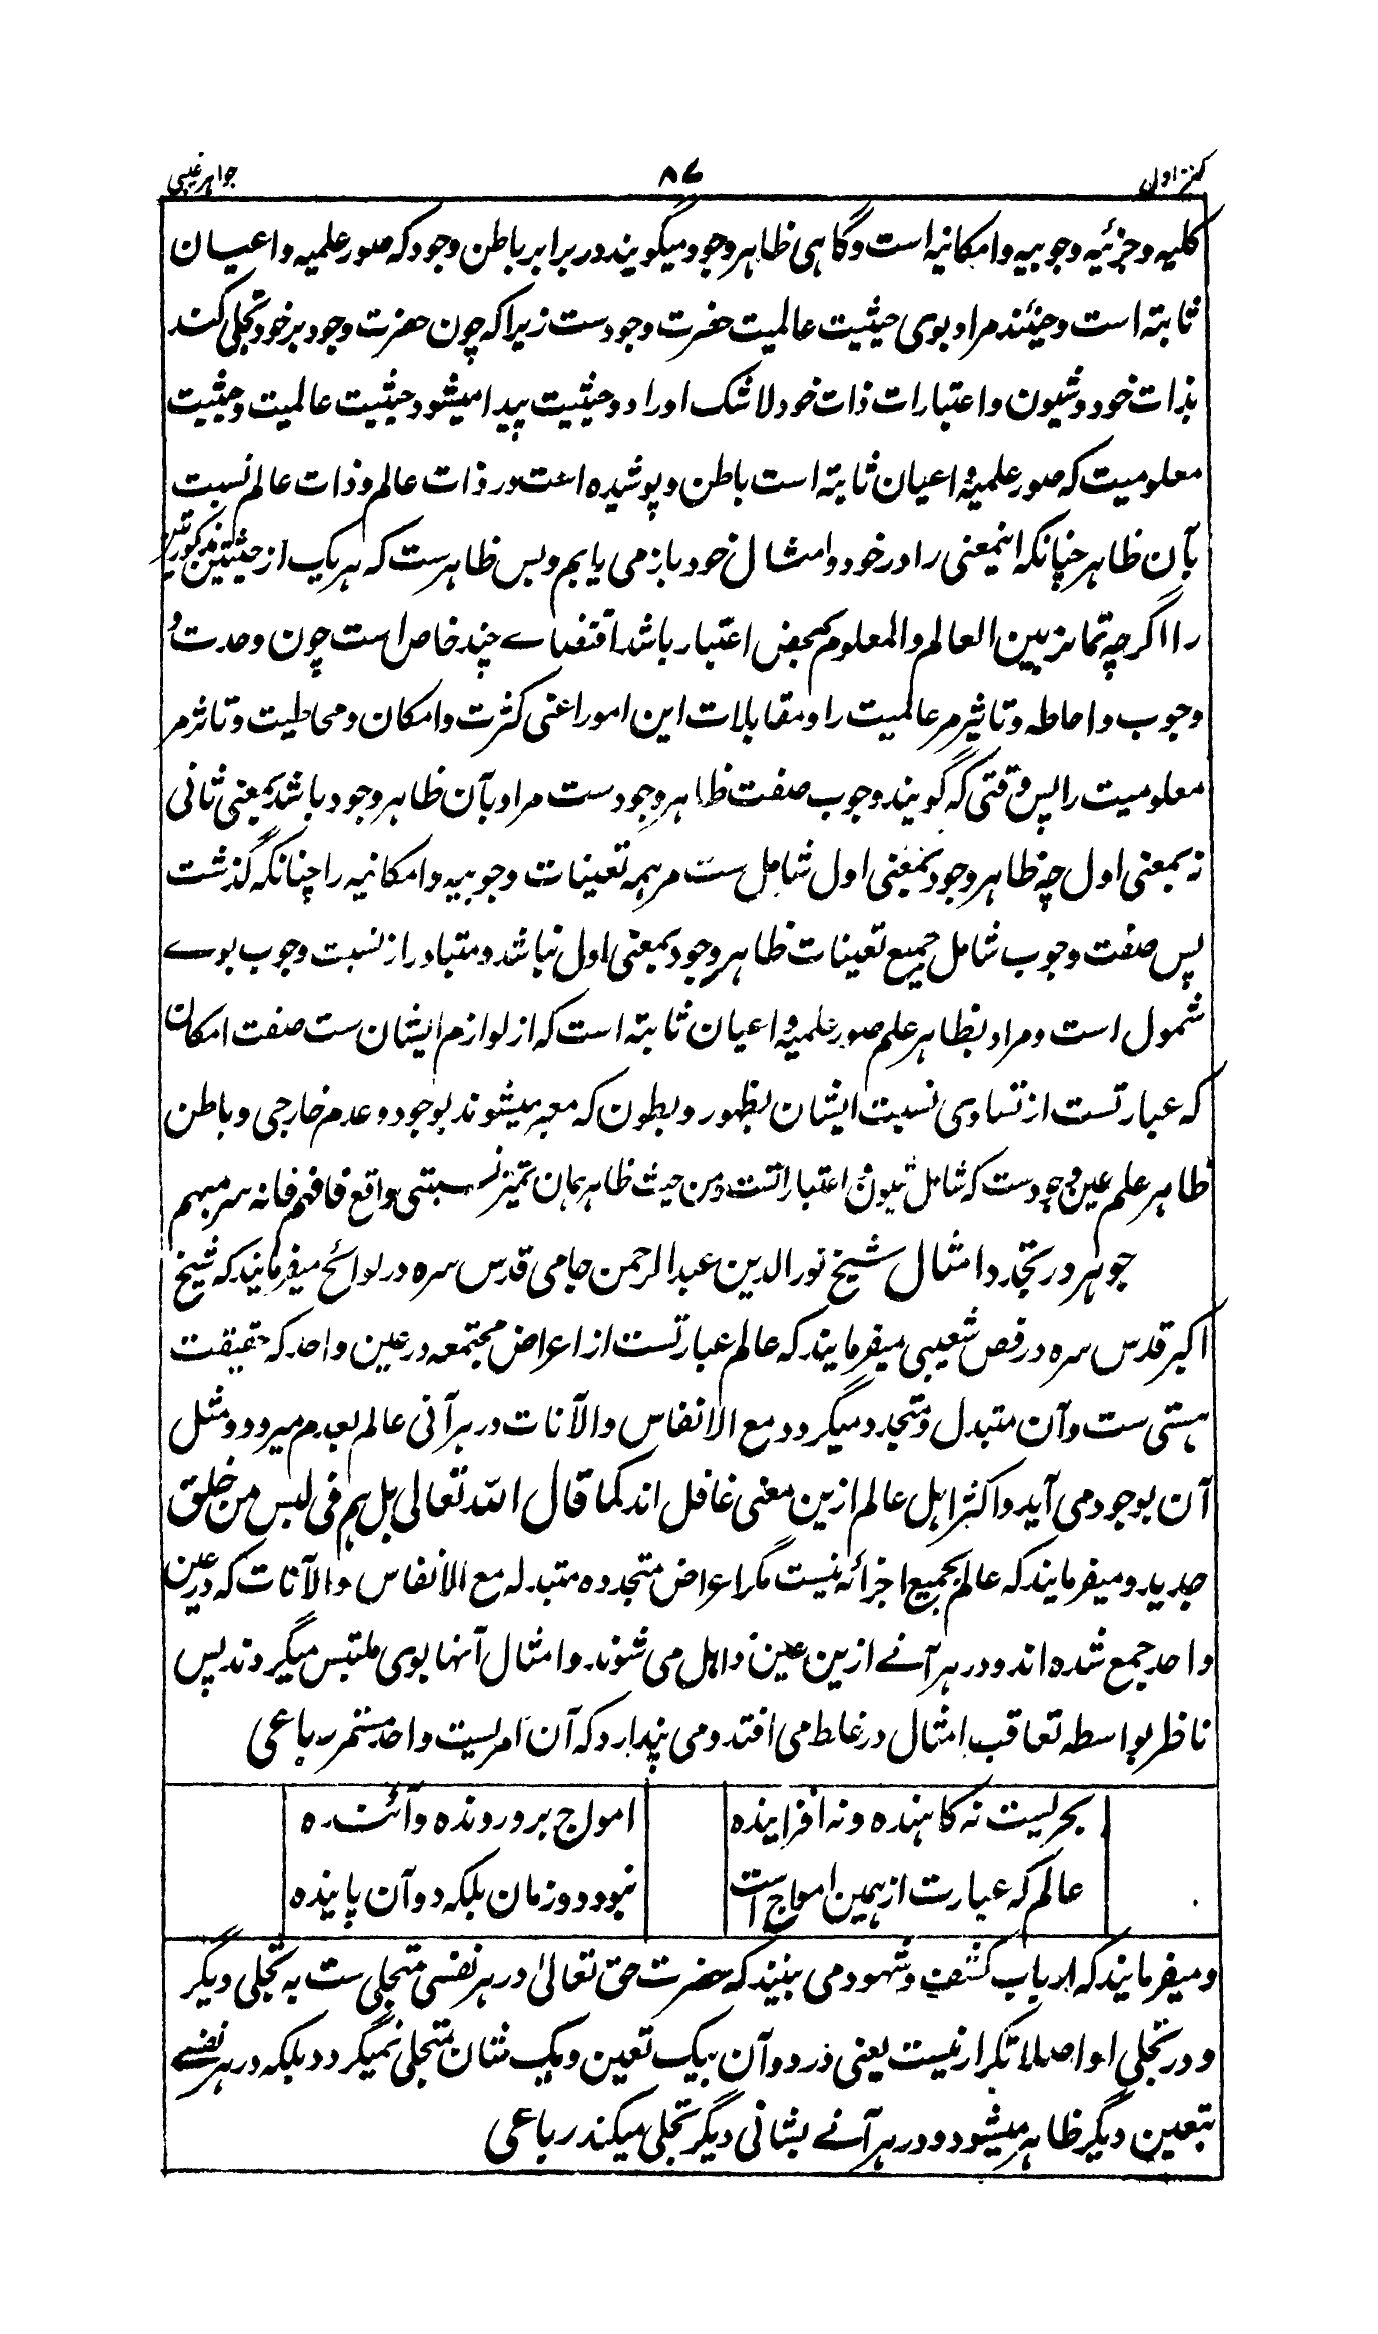 کنز اول
۸۷
جواہر غیبی
کلیه و جزئیه وجوبیه و امکانیه است و گاهی ظاہر وجود میگویند در برابر باطن وجود که صور علمیه و اعیان
ثابته است و حینئذ مراد بوی حیثیت عالمیت حضرت وجودست زیراکه چون حضرت وجود بر خود تجلی کند
بذات خود و شیون و اعتبارات ذات خود لاشک او را دو حیثیت پیدا میشود حیثیت عالمیت و حیثیت
معلومیت که صور علمیه و اعیان ثابته است باطن و پوشیده است در ذات عالم و ذات عالم نسبت
بآن ظاہر چنانکه اینمعنی را در خود و امثال خود باز می یابم و بس ظاہرست که هر یک از حیثیتین مذکورتین
را اگرچه تمایز بین العالم والمعلوم بمحض اعتبار باشد اقتضاے چند خاص است چون وحدت و
وجوب و احاطه و تاثیر مر عالمیت را و مقابلات این امور اعنی کثرت و امکان و محاطیت و تاثر مر
معلومیت را پس وقتی که گویند وجوب صفت ظاہر وجودست مراد بآن ظاہر وجود باشد بمعنی ثانی
نه بمعنی اول چه ظاہر وجود بمعنی اول شامل ست مر ہمه تعینات وجوبیه و امکانیه را چنانکه گذشت
پس صفت وجوب شامل جمیع تعینات ظاہر وجود بمعنی اول نباشد و متبادر از نسبت وجوب بوے
شمول است و مراد بظاہر علم صور علمیه و اعیان ثابته است که از لوازم ایشان ست صفت امکان
که عبارتست از تساوی نسبت ایشان بظهور و بطون که معبر میشوند بوجود و عدم خارجی و باطن
ظاہر علم عین وجودست که شامل شیون و اعتباراتست و من حیث ظاہر ہمان تمیز نسبتی واقع فافهم فانه سر مبهم
جوہر در تجدد امثال شیخ نورالدین عبدالرحمن جامی قدس سره در لوائح میفرمایند که شیخ
اکبر قدس سره در فص شعیبی میفرمایند که عالم عبارتست از اعراض مجتمعه در عین واحد که حقیقت
ہستی ست و آن متبدل و متجدد میگردد مع الانفاس والآنات در ہر آنی عالم بعدم میرود و مثل
آن بوجود می آید و اکثر اہل عالم ازین معنی غافل اند کما قال الله تعالی بل ہم فی لبس من خلق
جدید و میفرمایند که عالم بجمیع اجزائه نیست مگر اعراض متجدده متبدله مع الانفاس والآنات که در عین
واحد جمع شده اند و در ہر آنے ازین عین زائل می شوند و امثال آنها بوی ملتبس میگردند پس
ناظر بواسطه تعاقب امثال در غلط می افتد و می پندارد که آن امریست واحد مستمر رباعی
بحریست نه کاہنده و نه افزاینده امواج برو رونده و آئنده
عالم که عبارت از ہمین امواج است نبود دو زمان بلکه دو آن پاینده
و میفرمایند که ارباب کشف و شہود می بینند که حضرت حق تعالیٰ در ہر نفسی متجلی ست به تجلی دیگر
و در تجلی او اصلا تکرار نیست یعنی در دو آن بیک تعین و یک شان متجلی نمیگردد بلکه در ہر نفسے
بتعین دیگر ظاہر میشود و در ہر آنے بشانی دیگر تجلی میکند رباعی